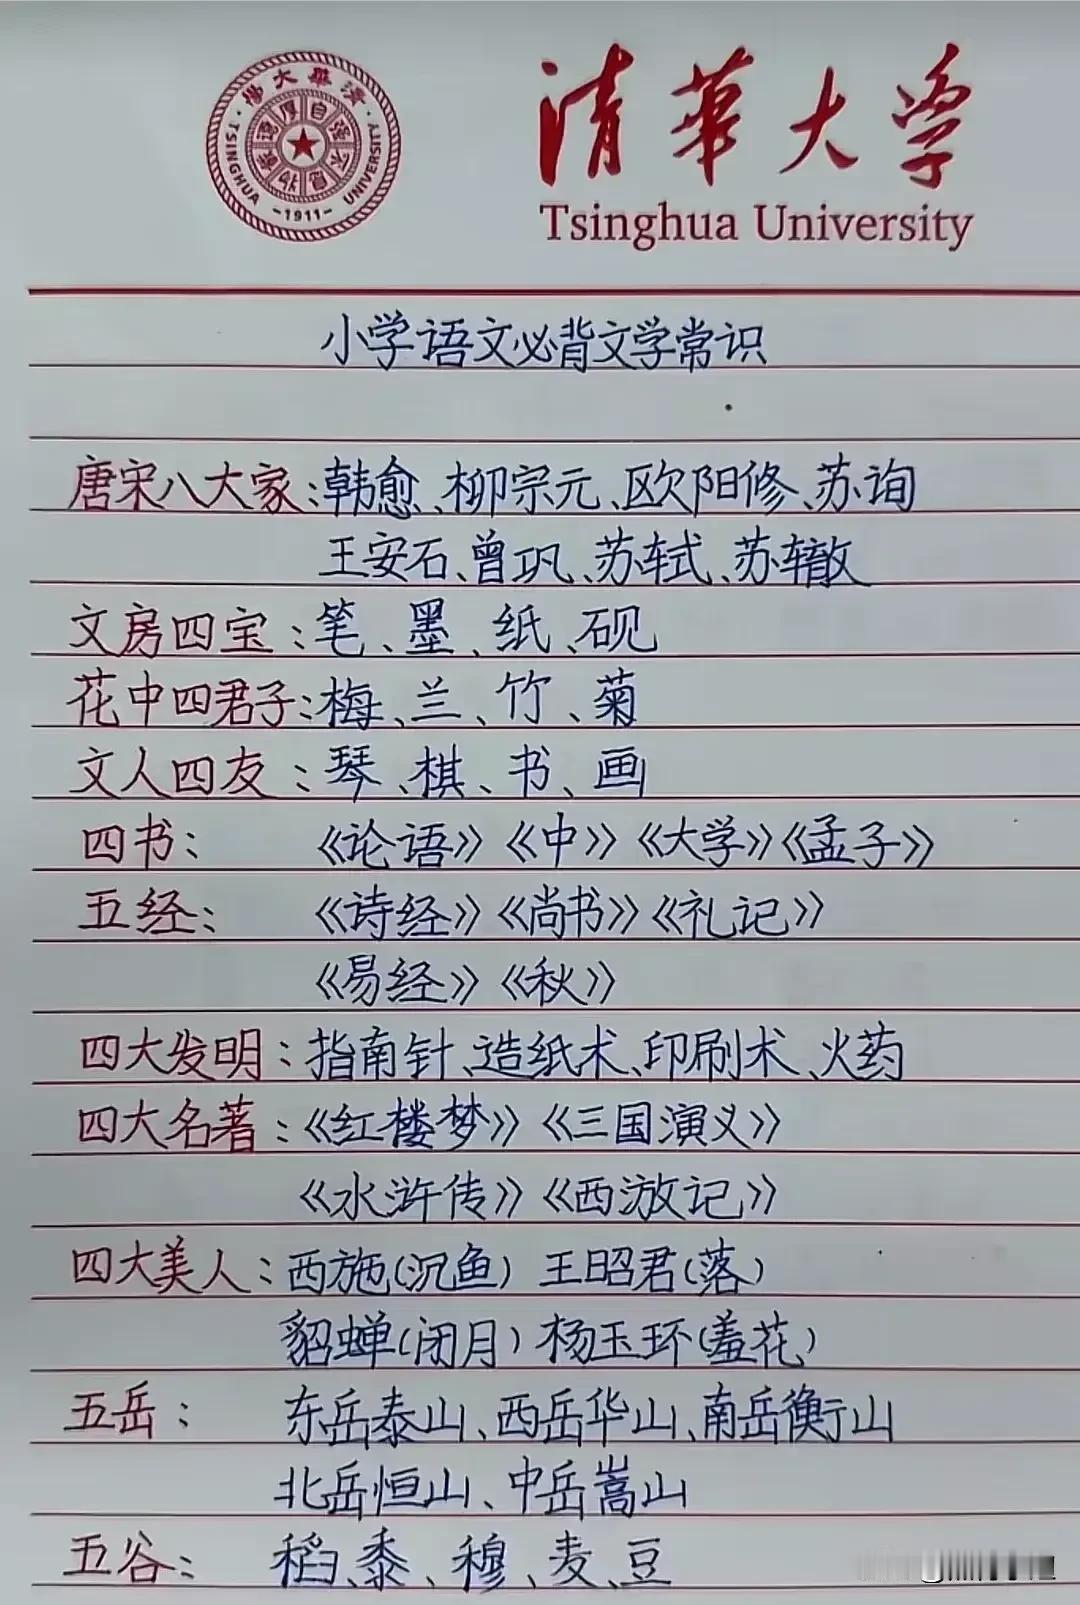 清華大学
Tsinghua University
清華大學
TSINGHUA UNIVERSITY
-1911-
小学语文必背文学常识
唐宋八大家:韩愈、柳宗元、欧阳修、苏询
王安石、曾巩、苏轼、苏辙
文房四宝:笔、墨、纸、砚
花中四君子:梅、兰、竹、菊
文人四友:琴、棋、书、画
四书:《论语》《中》《大学》《孟子》
五经:《诗经》《尚书》《礼记》
《易经》《秋》
四大发明:指南针、造纸术、印刷术、火药
四大名著:《红楼梦》《三国演义》
《水浒传》《西游记》
四大美人:西施(沉鱼) 王昭君(落)
貂蝉(闭月) 杨玉环(羞花)
五岳:东岳泰山、西岳华山、南岳衡山
北岳恒山、中岳嵩山
五谷:稻、黍、穆、麦、豆